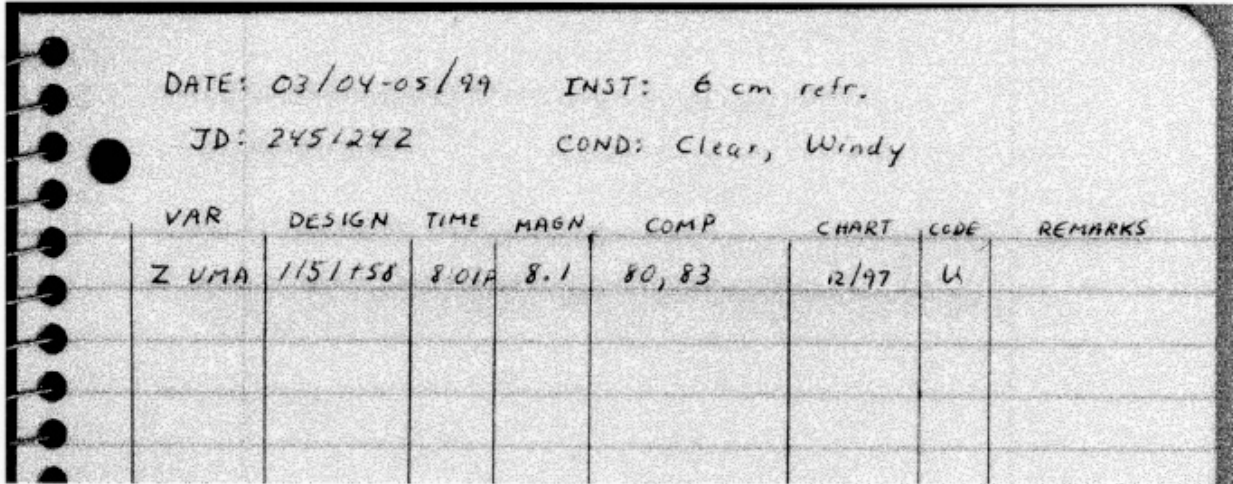 DATE: 03/04-05/99 INST: 6 cm refr.
JD: 2451242 COND: Clear, Windy
VAR DESIGN TIME MAGN. COMP CHART CODE REMARKS
Z UMA 1151+58 8:01P 8.1 80, 83 12/97 U